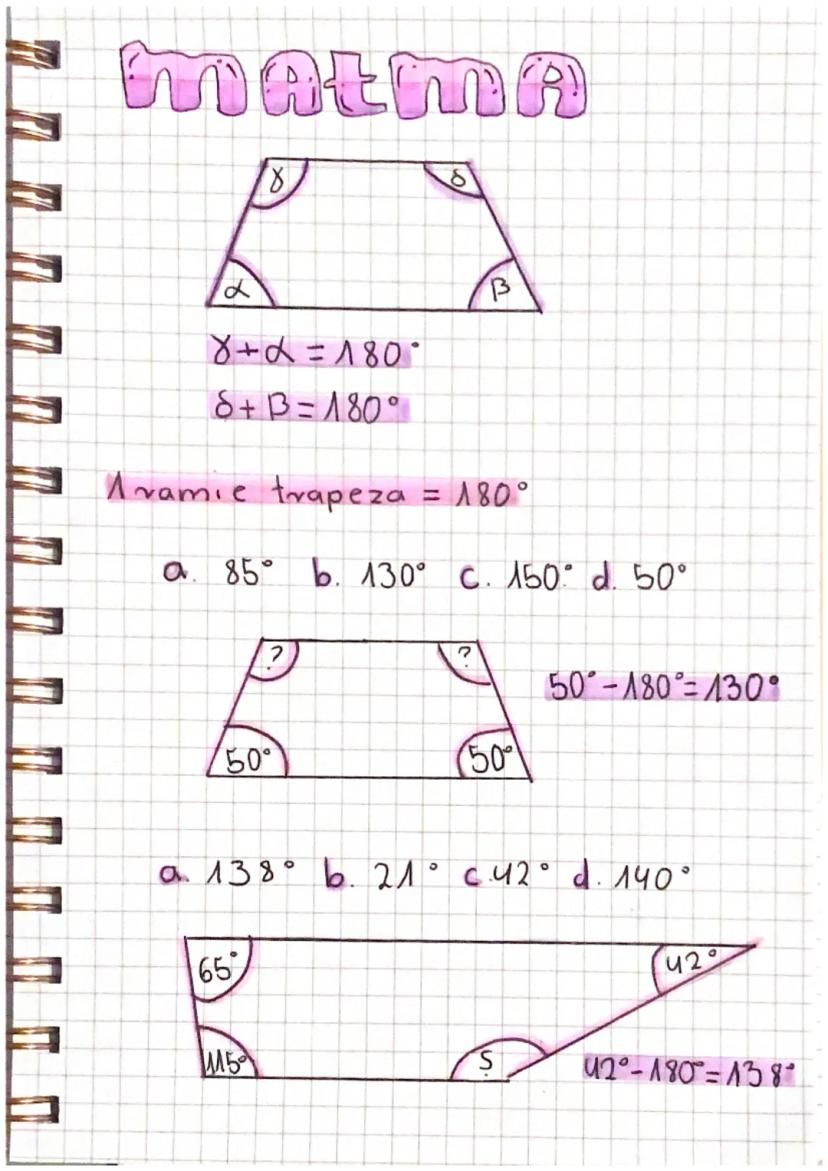 MATMA
γ δ
α β
γ+α=180°
δ+β=180°
1 ramie trapeza = 180°
a. 85° b. 130° c. 150° d. 50°
? ?
50°-180°=130°
50° 50°
a. 138° b. 21° c. 42° d. 140°
65° 42°
115° ?
42°-180°=138°